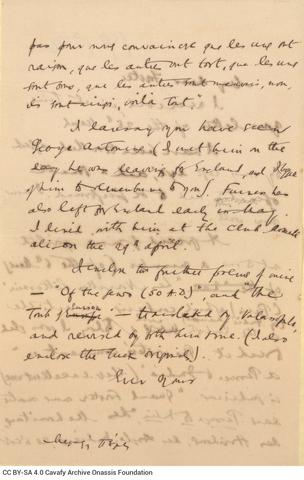 pas pour nous convaincre que les uns ont
raison, que les autres ont tort, que les uns
sont bons, que les autres sont mauvais, non,
ils sont ainsi, voilà tout."
I daresay you have seen
George Antonius (I met him on the
day he was leaving for England, and
of him to remember to you). Furness has
also left for England early in May.
I dined with him at the Club
Ali, on the 29th April.
I enclose two further poems of mine
— "Of the Jews (50 A.D.)", and "The
Tomb of — translated by Valassopoulo,
and revised by both him and me. (I also
enclose the Greek originals).
Ever yours
CC BY-SA 4.0 Cavafy Archive Onassis Foundation